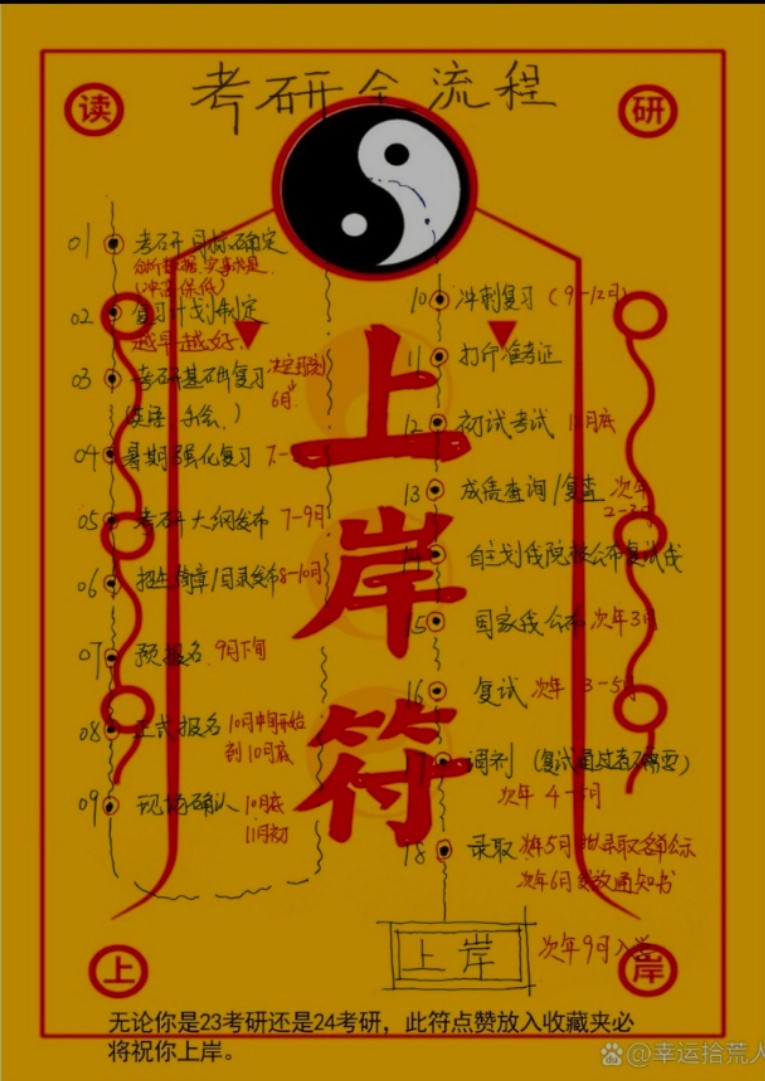 考研全流程
读
研
01 考研目标确定
分析数据、实事求是
(冲高保低)
02 复习计划制定
越早越好、
03 考研基础复习
6月
(英语、手绘、)
04 暑期强化复习 7.-
05 考研大纲发布 7-9月
06 招生简章/目录发布 8-10月
07 预报名 9月下旬
08 正式报名 10月中旬开始
到10月底
09 现场确认 10月底
11月初
10 冲刺复习 (9-12月)
11 打印准考证
12 初试考试 12月底
13 成绩查询/复查 次年
2-3月
14 自主划线院校公布复试线
15 国家线公布 次年3月
16 复试 次年 3-5月
调剂 (复试通过者不需要)
次年 4-5月
18 录取 次年5月 录取名单公示
次年6月发放通知书
上岸 次年9月入学
上岸符
上
岸
无论你是23考研还是24考研，此符点赞放入收藏夹必
将祝你上岸。
@幸运拾荒人